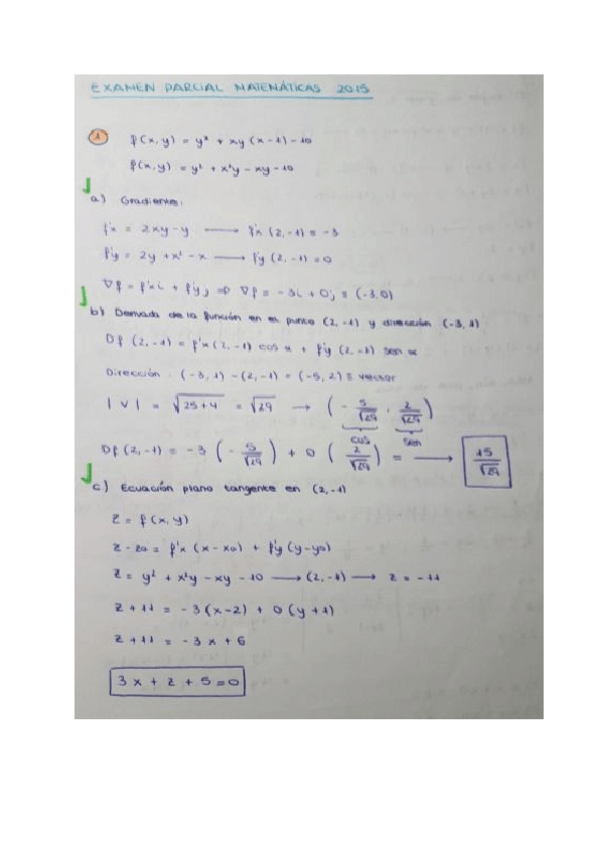 EXAMEN PARCIAL MATEMÁTICAS 2015
1 f(x,y) = y² + xy(x-1)-10
f(x,y) = y² + x²y - xy - 10
a) Gradiente:
f'x = 2xy - y ⟶ f'x (2,-1) = -3
f'y = 2y + x² - x ⟶ f'y (2,-1) = 0
∇f = f'x i + f'y j ⇒ ∇f = -3i + 0j ≡ (-3,0)
b) Derivada de la función en el punto (2,-1) y dirección (-3,1)
Df (2,-1) = f'x (2,-1) cos α + f'y (2,-1) sen α
Dirección: (-3,1) - (2,-1) = (-5,2) ≡ vector
|v| = √25+4 = √29 → (- 5/√29 , 2/√29)
cos sen
Df (2,-1) = -3 (- 5/√29) + 0 (2/√29) = ⟶ 15/√29
c) Ecuación plano tangente en (2,-1)
z = f(x,y)
z - z0 = f'x (x-x0) + f'y (y-y0)
z = y² + x²y - xy - 10 ⟶ (2,-1) ⟶ z = -11
z + 11 = -3(x-2) + 0(y+1)
z + 11 = -3x + 6
3x + z + 5 = 0